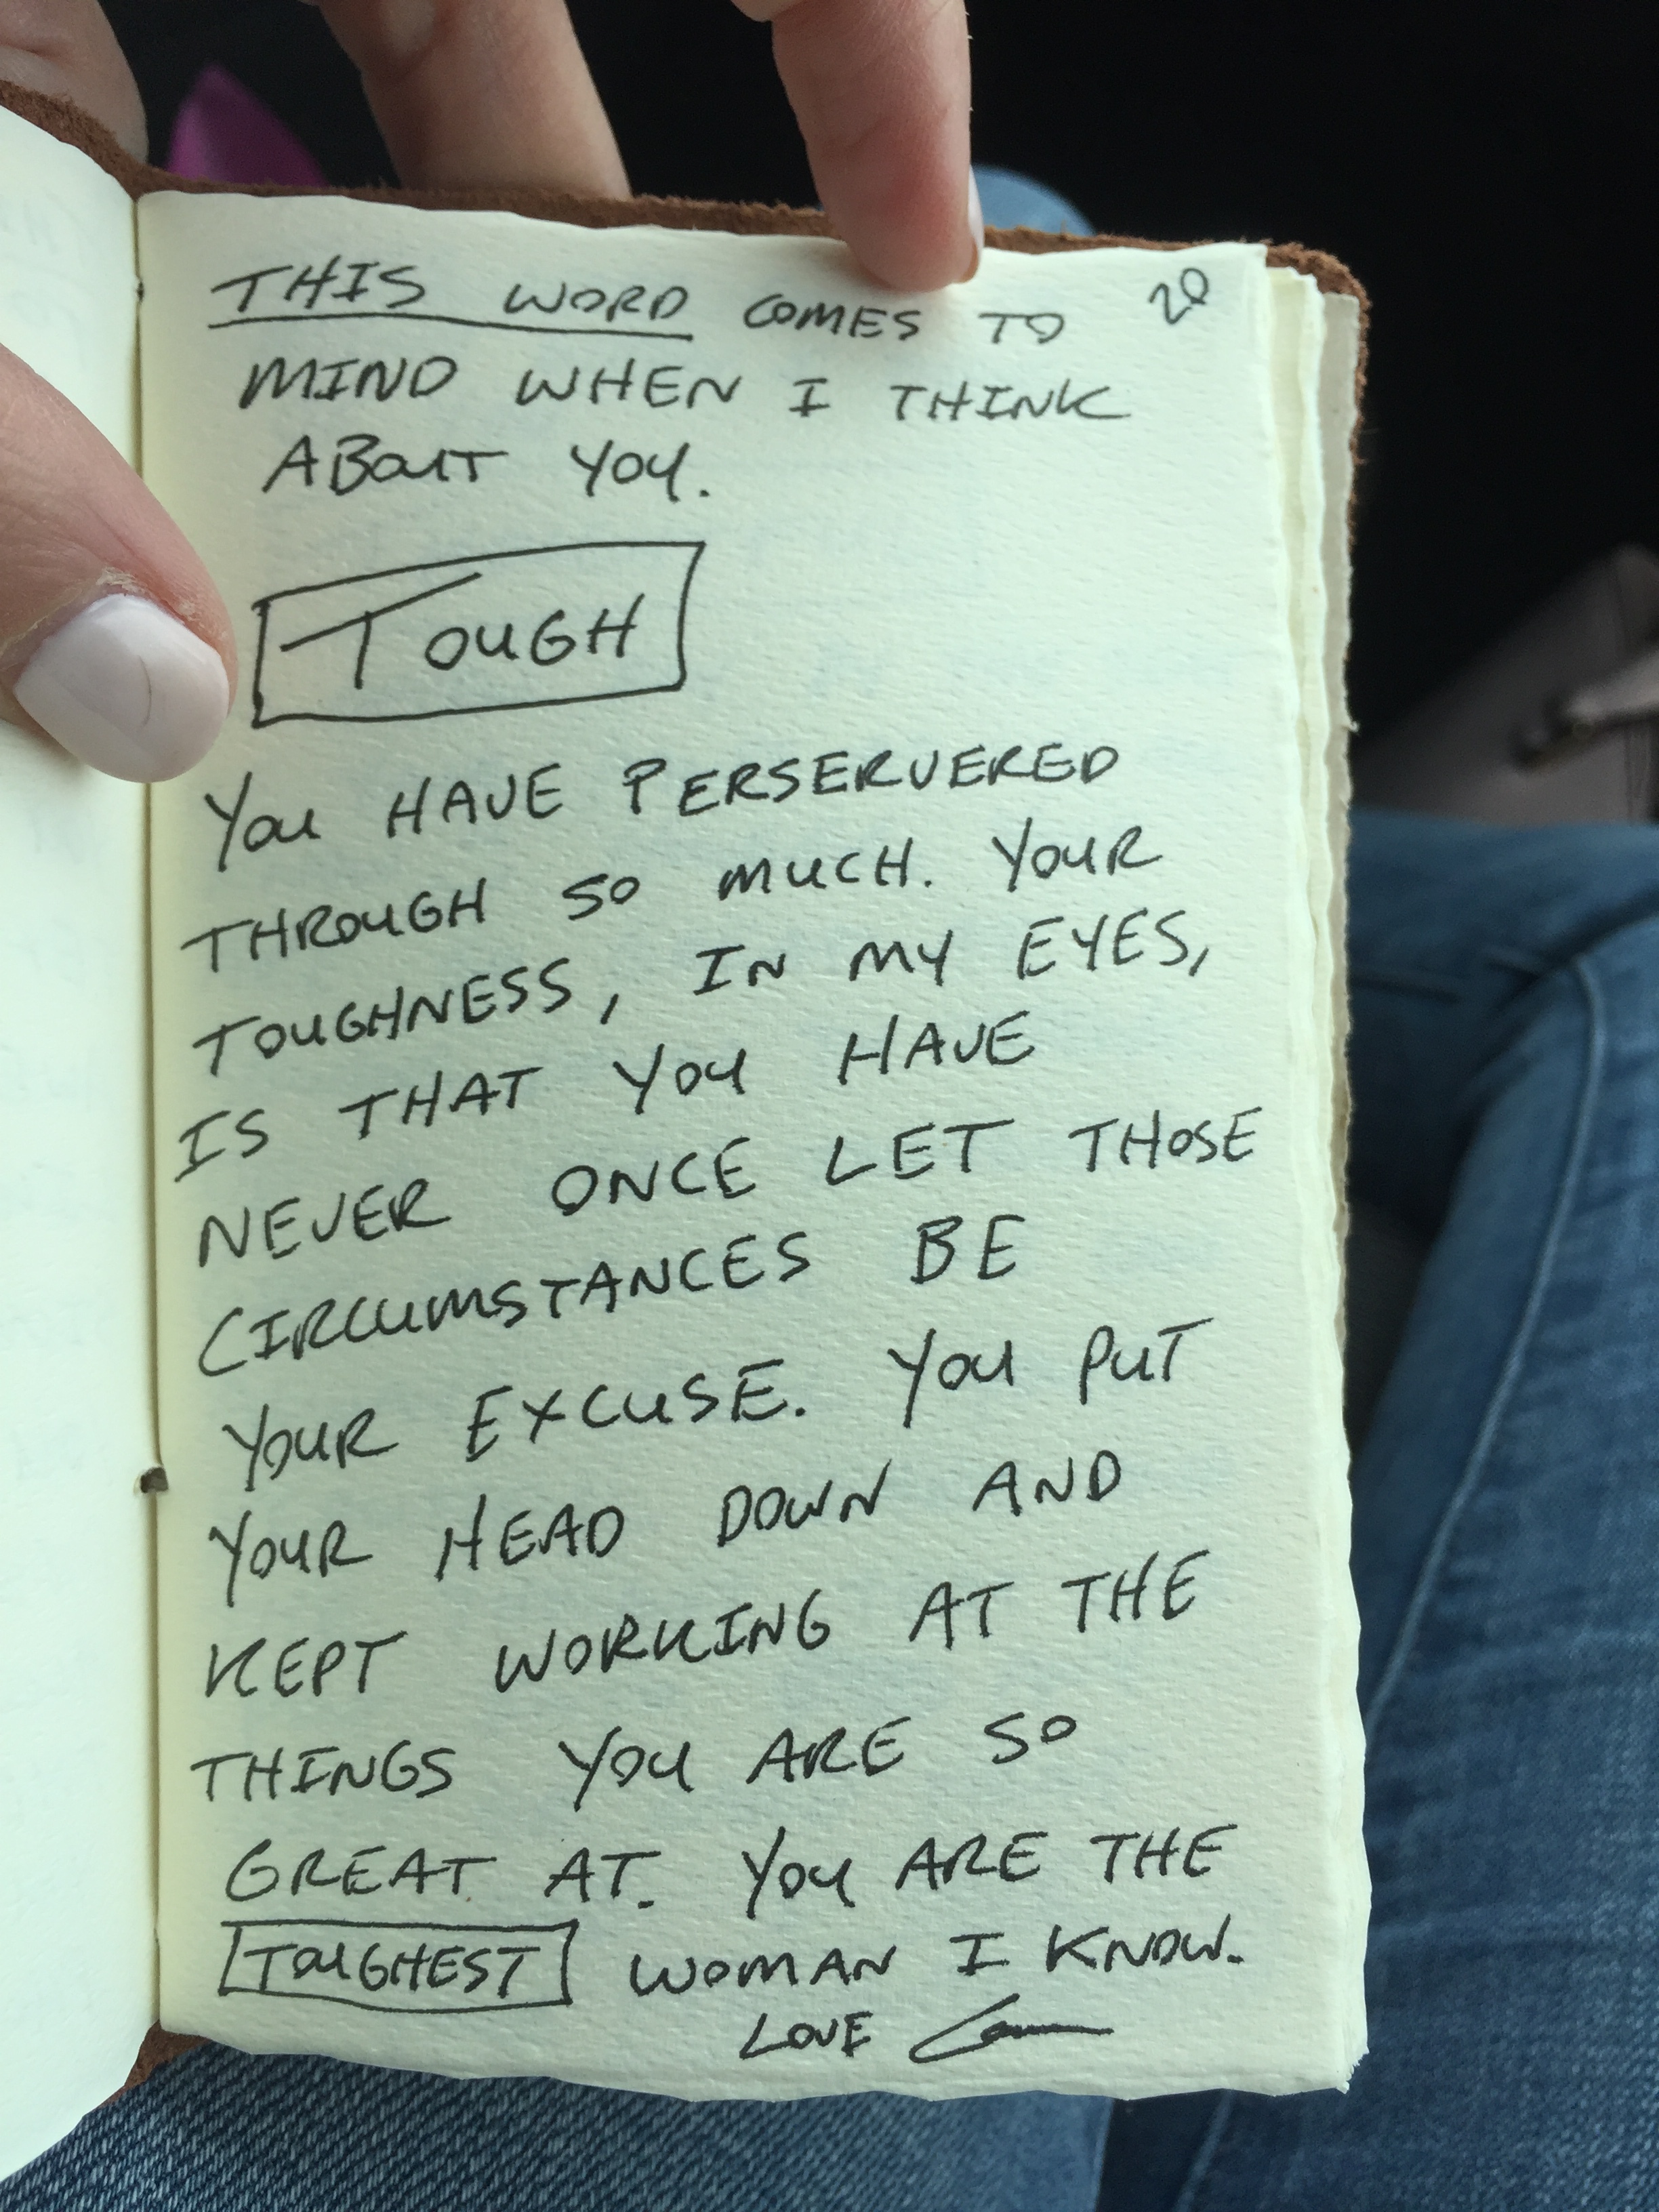 THIS WORD COMES TO 20
MIND WHEN I THINK
ABOUT YOU.
TOUGH
YOU HAVE PERSERVERED
THROUGH SO MUCH. YOUR
TOUGHNESS, IN MY EYES,
IS THAT YOU HAVE
NEVER ONCE LET THOSE
CIRCUMSTANCES BE
YOUR EXCUSE. YOU PUT
YOUR HEAD DOWN AND
KEPT WORKING AT THE
THINGS YOU ARE SO
GREAT AT. YOU ARE THE
TOUGHEST WOMAN I KNOW.
LOVE